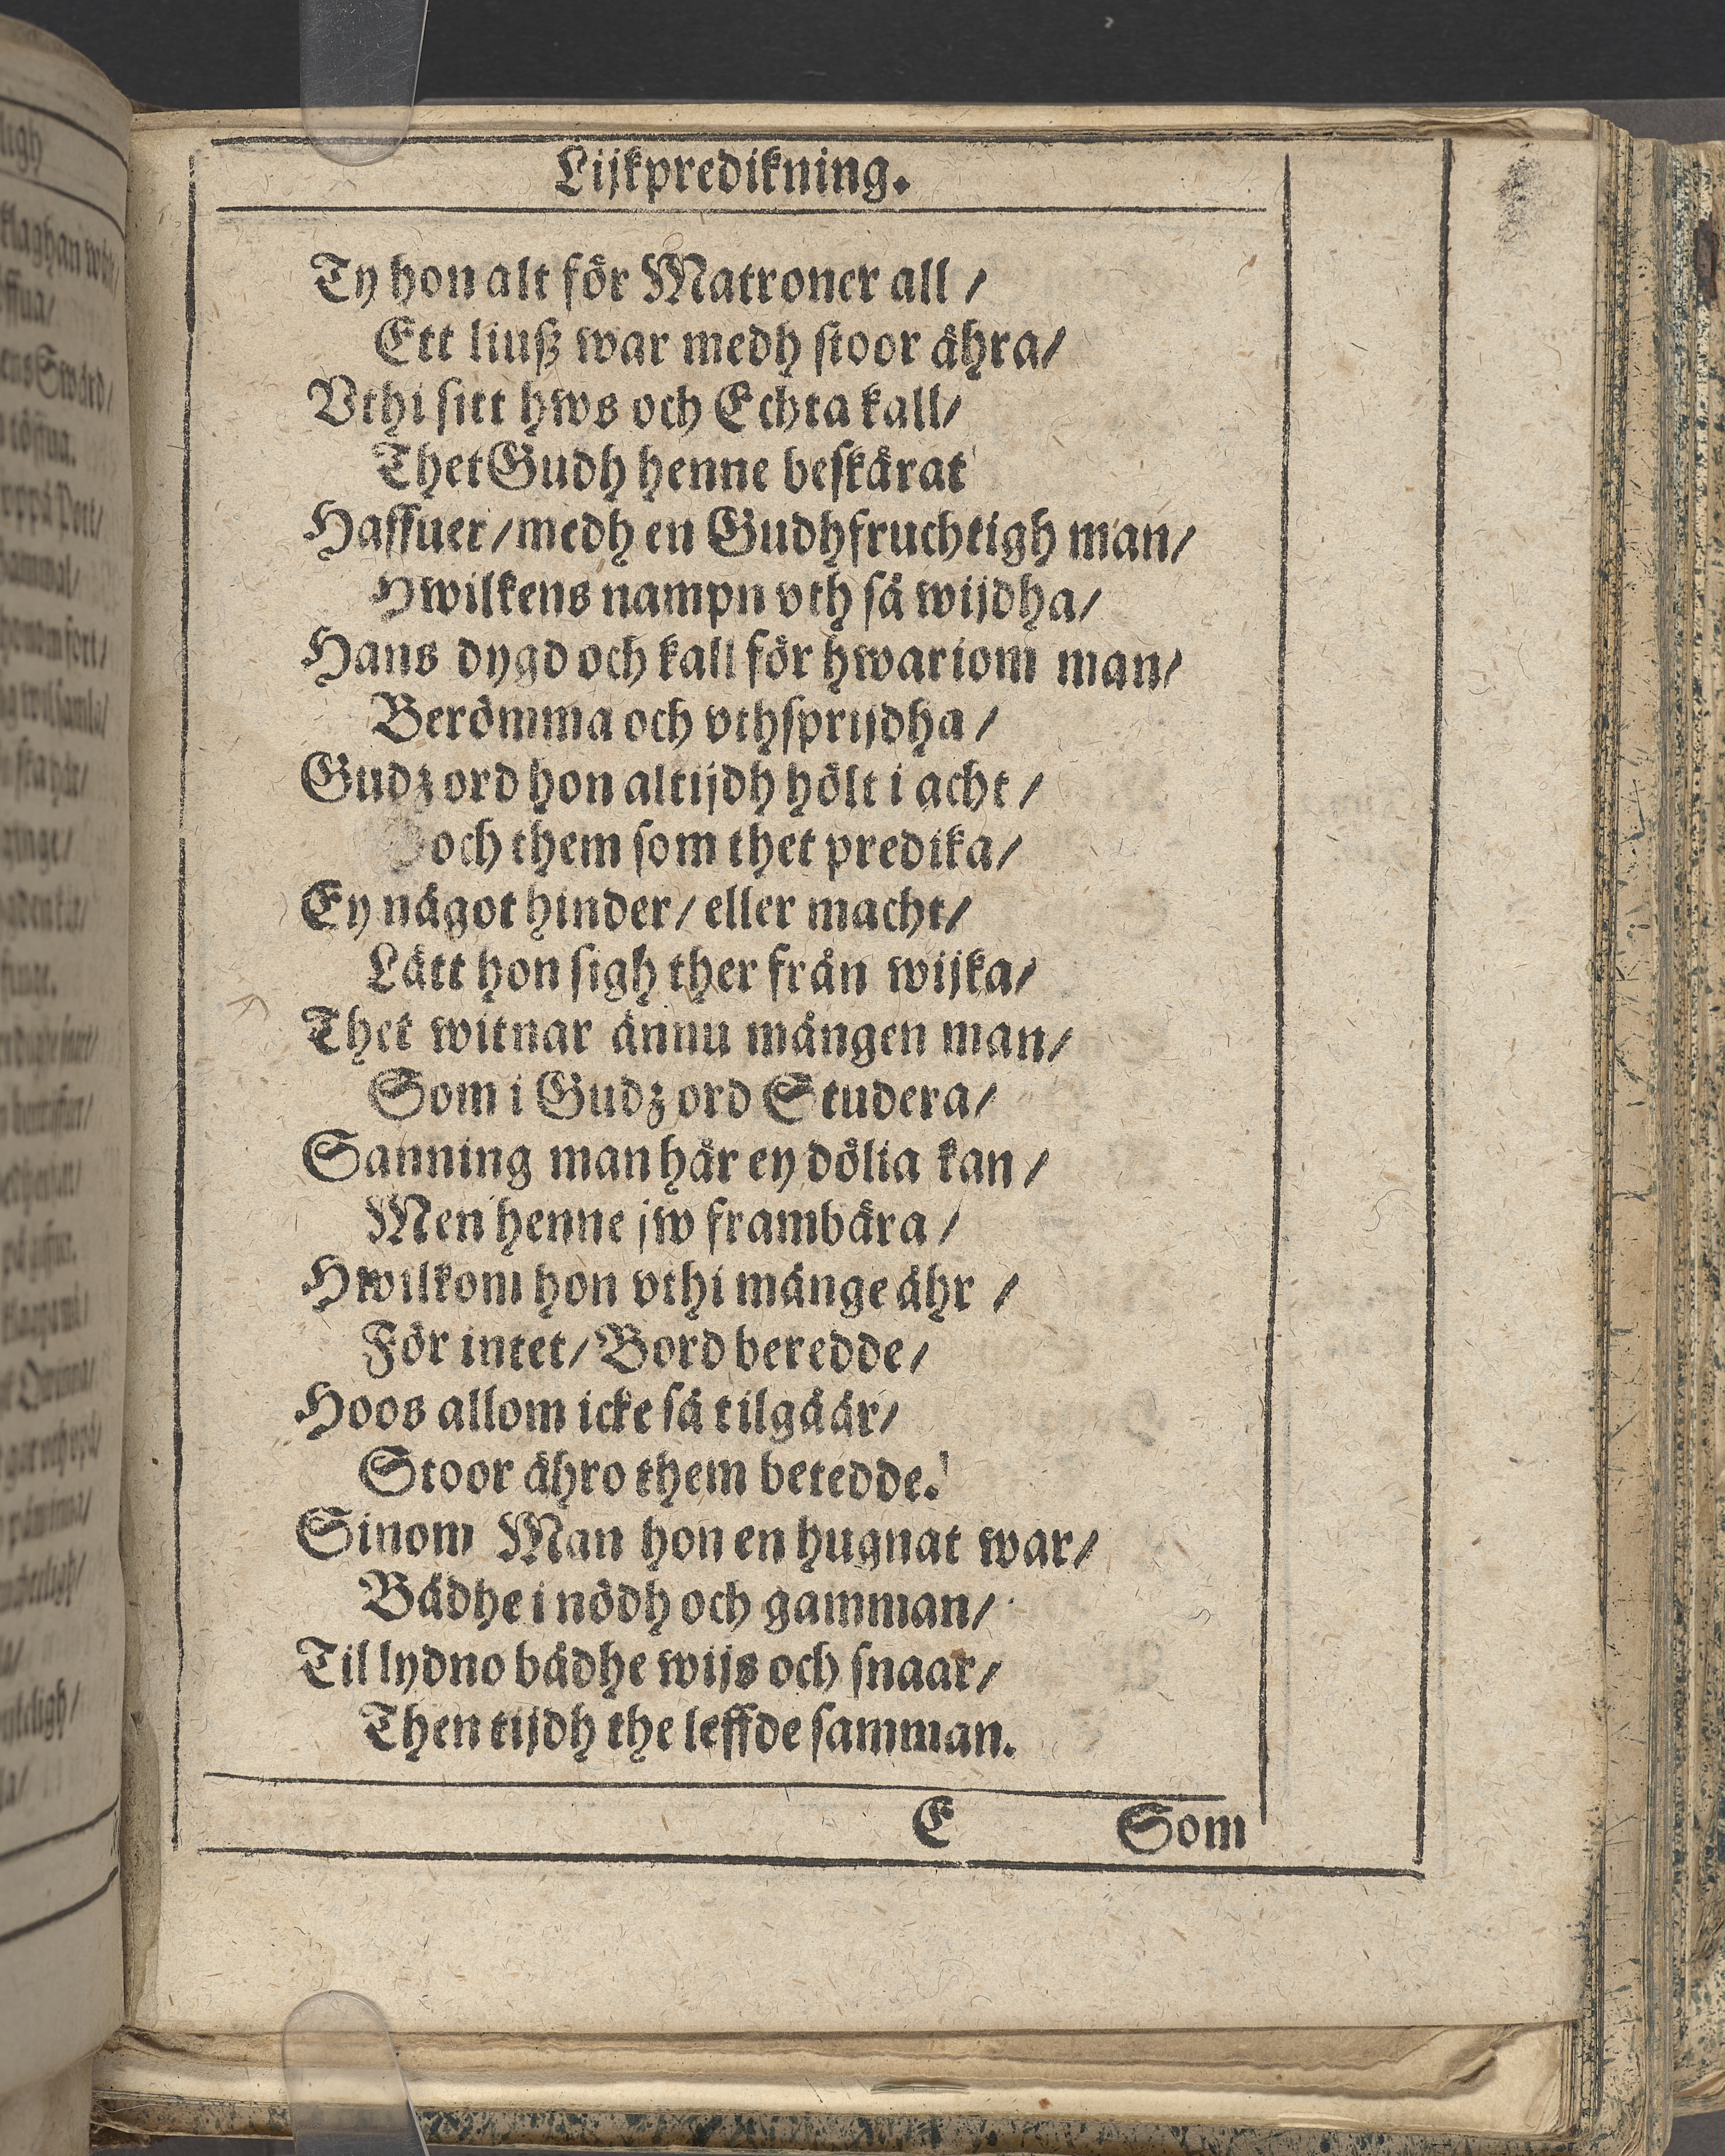 Lijkpredikning.
Ty hon alt för Matroner all /
Ett liuß war medh stoor ähra/
Vthi sitt hws och Echta kall/
Thet Gudh henne beskärat
Haffuer / medh en Gudhfruchtigh man/
Hwilkens nampn vth så wijdha/
Hans dygd och kall för hwariom man/
Berömma och vthsprijdha /
Gudz ord hon altijdh hölt i acht /
och them som thet predika/
Ey något hinder / eller macht/
Lått hon sigh ther från wijka/
Thet witnar ännu mången man/
Som i Gudz ord Studera/
Sanning man här ey dölia kan /
Men henne jw frambära /
Hwilkom hon vthi månge åhr /
För intet / Bord beredde/
Hoos allom icke så tilgåår/
Stoor ähro them betedde.
Sinom Man hon en hugnat war/
Bådhe i nödh och gamman/
Til lydno bådhe wijs och snaar/
Then tijdh the leffde samman.
E Som